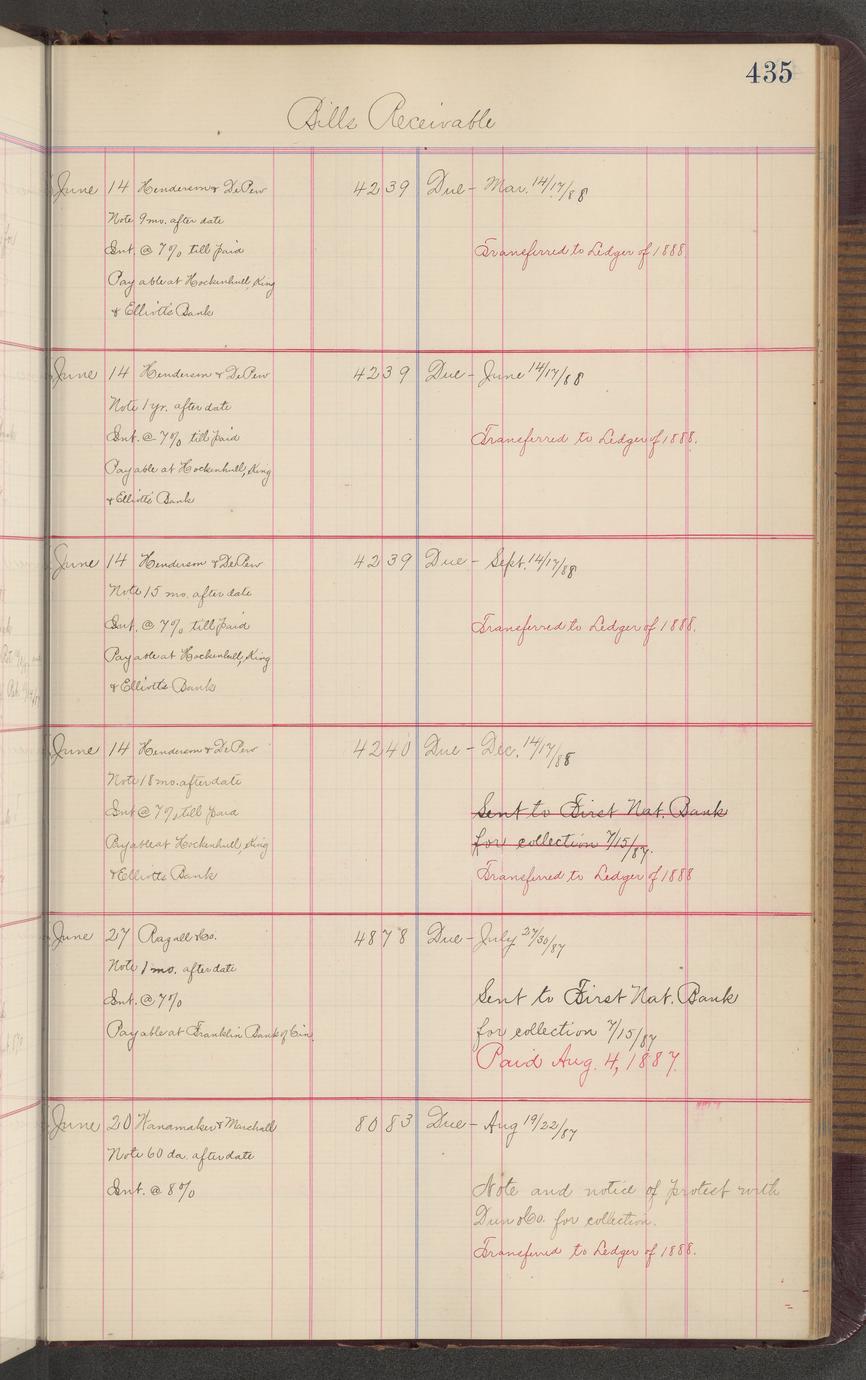 435
Bills Receivable
June 14 Henderson & DePew 42 39 Due - Mar. 14/17/88
Note 9 mo. after date
Int. @ 7% till paid Transferred to Ledger of 1888
Payable at Hockenhull, King
& Elliott's Bank
June 14 Henderson & DePew 42 39 Due - June 14/17/88
Note 1 yr. after date
Int. @ 7% till paid Transferred to Ledger of 1888.
Payable at Hockenhull, King
& Elliott's Bank
June 14 Henderson & DePew 42 39 Due - Sept. 14/17/88
Note 15 mo. after date
Int. @ 7% till paid Transferred to Ledger of 1888.
Payable at Hockenhull, King
& Elliott's Bank
June 14 Henderson & DePew 42 40 Due - Dec. 14/17/88
Note 18 mo. after date
Int @ 7% till paid Sent to First Nat. Bank
Payable at Hockenhull, King for collection 7/15/87.
& Elliott's Bank Transferred to Ledger of 1888
June 27 Ragall & Co. 48 78 Due - July 27/30/87
Note 1 mo. after date
Int. @ 7% Sent to First Nat. Bank
Payable at Franklin Bank of Cin. for collection 7/15/87
Paid Aug. 4, 1887.
June 20 Wanamaker & Marchall 80 83 Due - Aug 19/22/87
Note 60 da. after date
Int. @ 8% Note and notice of protest with
Dun & Co. for collection.
Transferred to Ledger of 1888.